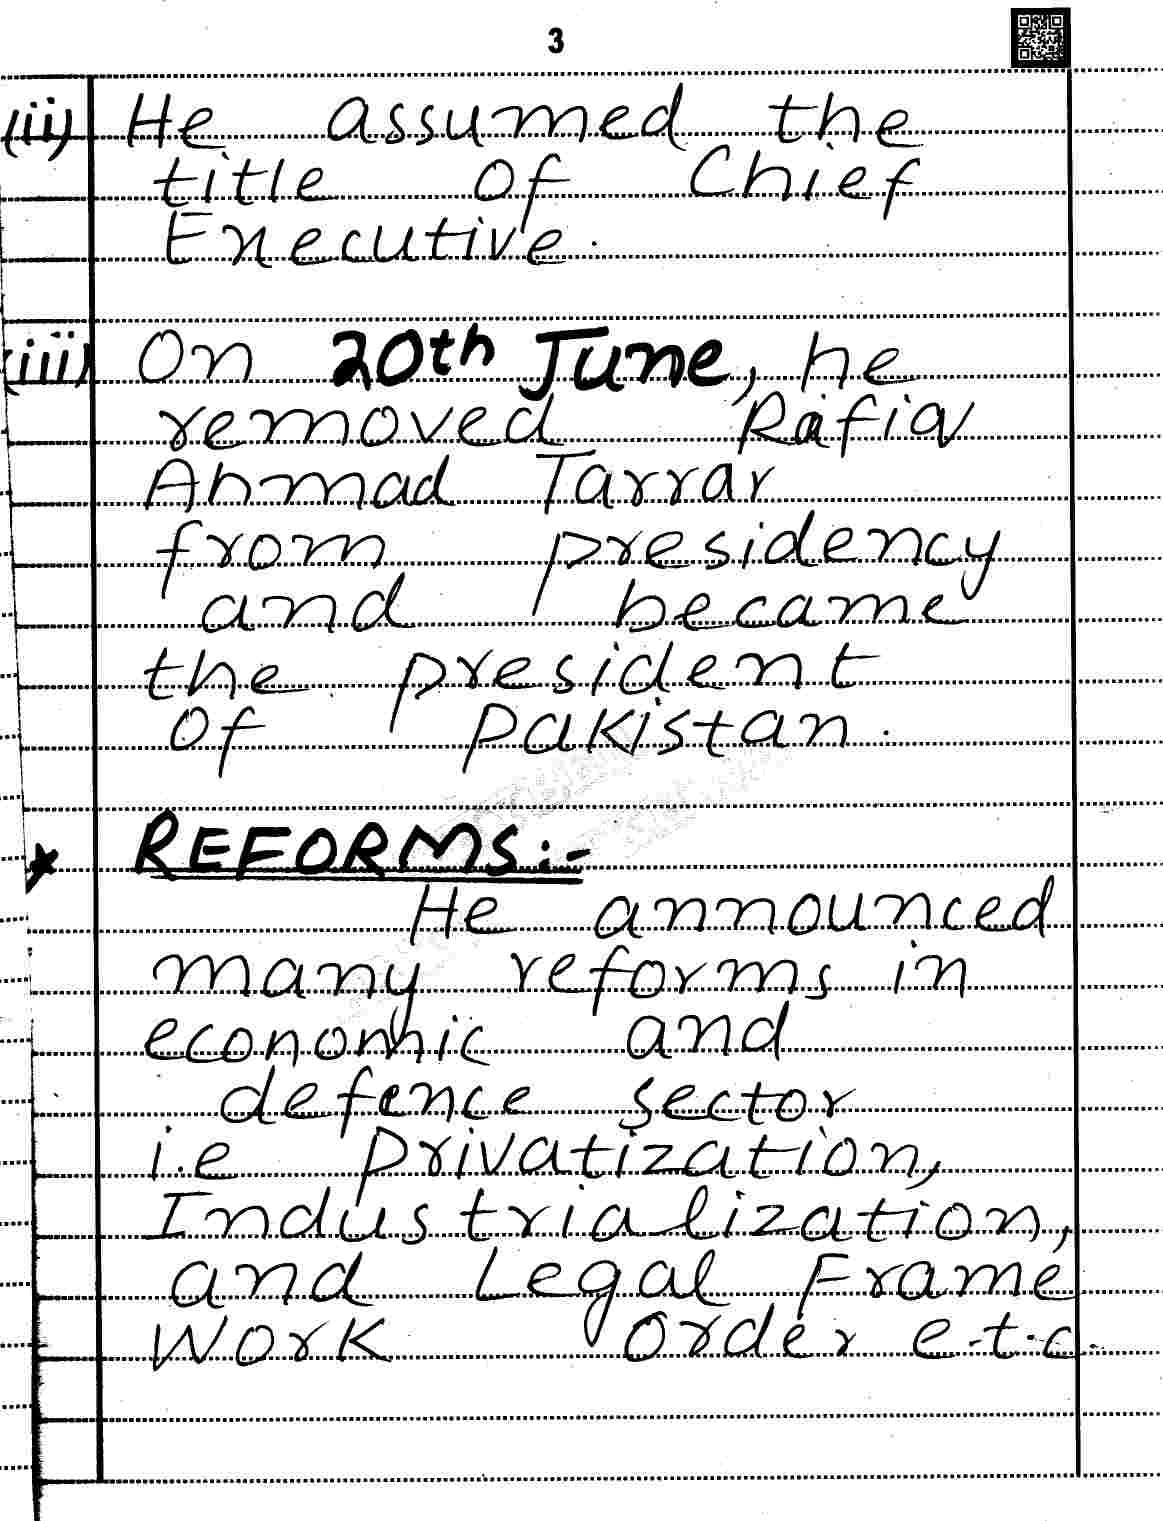 3
(ii) He assumed the
title of Chief
Executive.
(iii) On 20th June, he
removed Rafiq
Ahmad Tarrar
from presidency
and became
the president
of Pakistan.
* REFORMS:-
He announced
many reforms in
economic and
defence sector
i.e privatization,
Industrialization,
and Legal Frame
Work Order e.t.c.